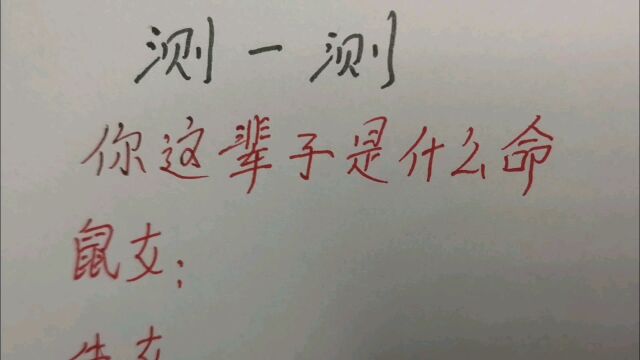 测一测
你这辈子是什么命
鼠女;